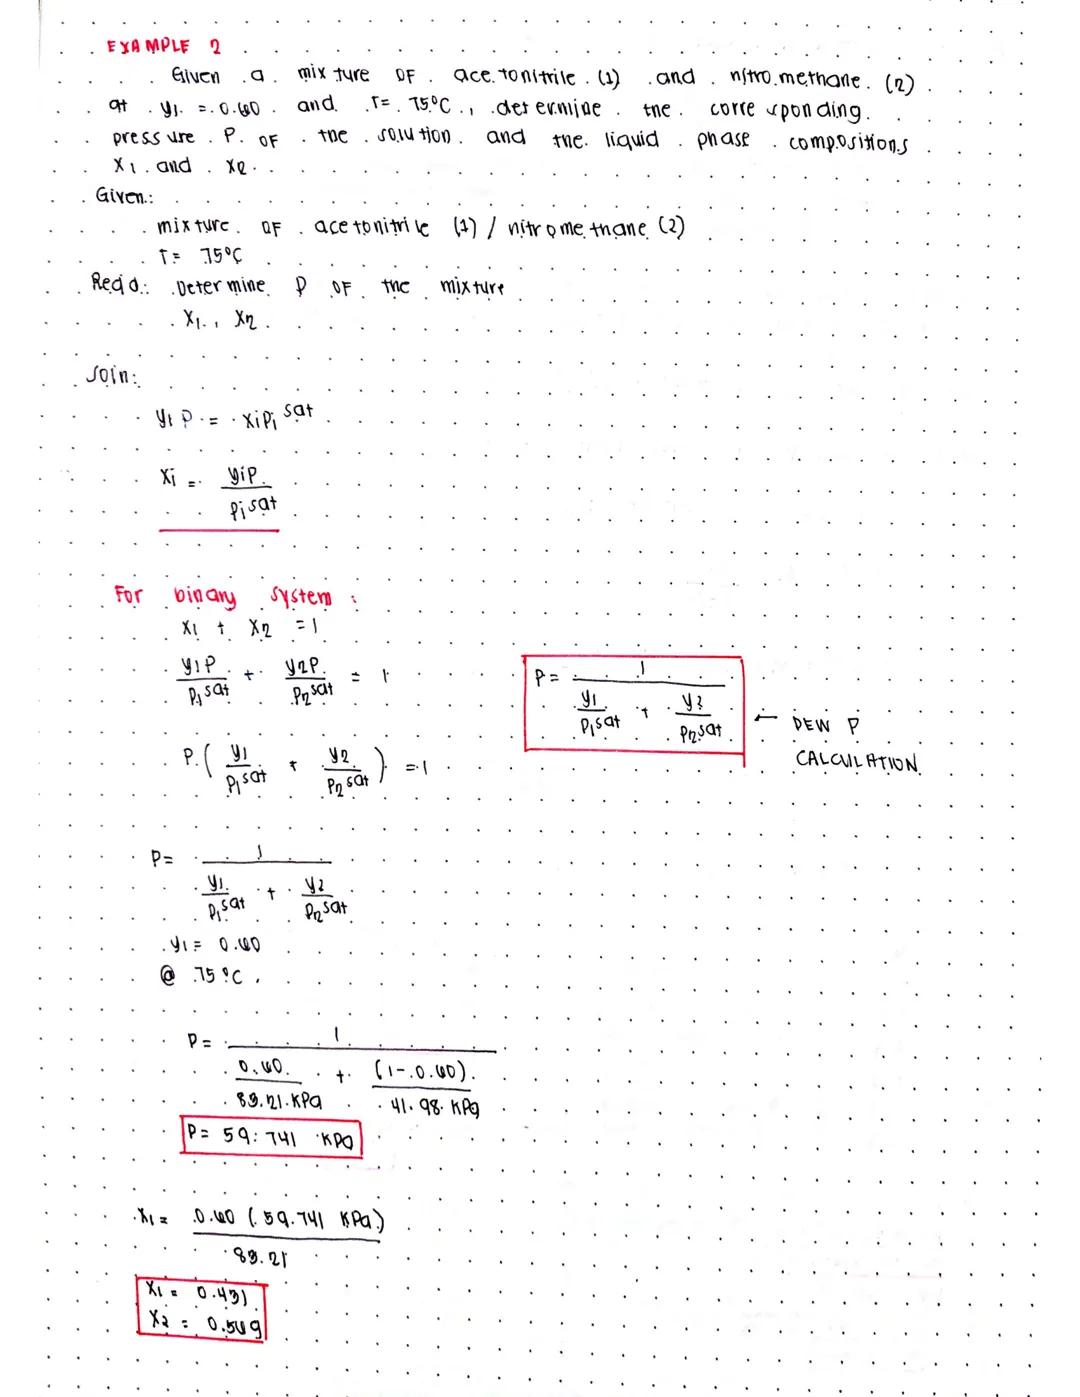 EXAMPLE 2
Given a mixture OF acetonitrile (1) and nitromethane (2)
at y1 = 0.60 and T= 75°C, determine the corresponding
pressure P OF the solution and the liquid phase compositions
x1 and x2.
Given:
mixture OF acetonitrile (1) / nitromethane (2)
T= 75°C
Req'd: Determine P OF the mixture
x1, x2
Soln:
yi P = xiPi sat
xi = yiP / Pi sat
For binary system:
x1 + x2 = 1
y1P / P1 sat + y2P / P2 sat = 1
P = 1 / (y1 / P1 sat + y2 / P2 sat) ← DEW P
CALCULATION
P (y1 / P1 sat + y2 / P2 sat) = 1
P = 1 / (y1 / P1 sat + y2 / P2 sat)
y1 = 0.60
@ 75°C,
P = 1 / (0.60 / 83.21 KPa + (1-0.60) / 41.98 KPa)
P = 59.741 KPa
x1 = 0.60 (59.741 KPa) / 83.21
x1 = 0.431
x2 = 0.569